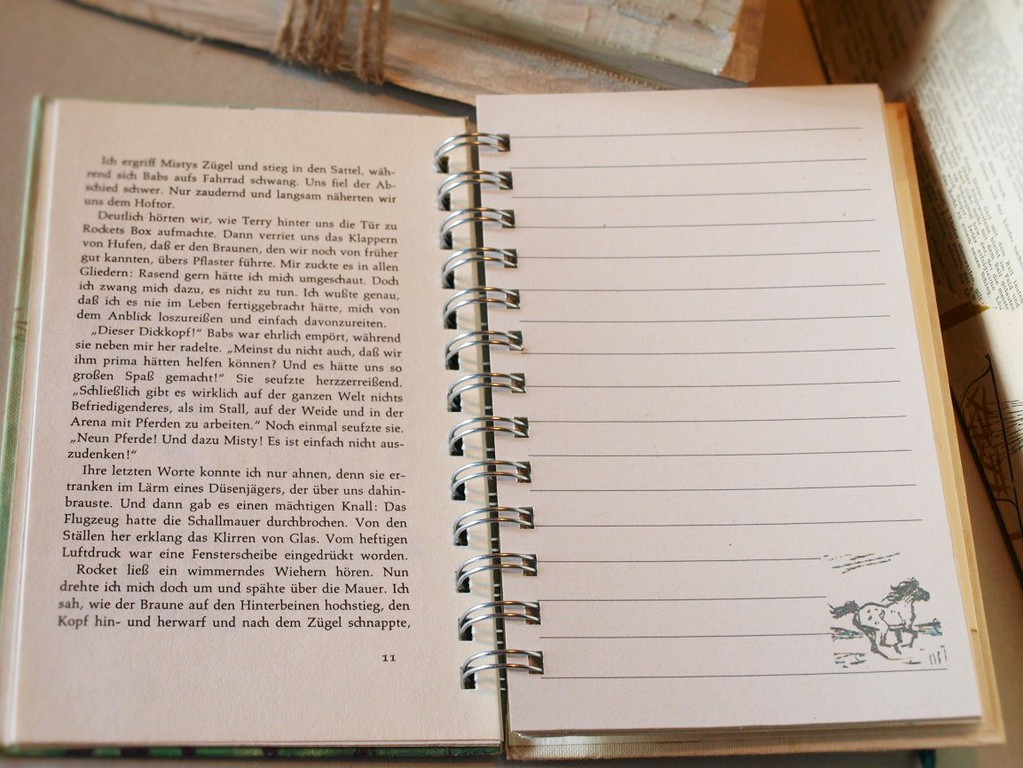 Ich ergriff Mistys Zügel und stieg in den Sattel, wäh-
rend sich Babs aufs Fahrrad schwang. Uns fiel der Ab-
schied schwer. Nur zaudernd und langsam näherten wir
uns dem Hoftor.
Deutlich hörten wir, wie Terry hinter uns die Tür zu
Rockets Box aufmachte. Dann verriet uns das Klappern
von Hufen, daß er den Braunen, den wir noch von früher
gut kannten, übers Pflaster führte. Mir zuckte es in allen
Gliedern: Rasend gern hätte ich mich umgeschaut. Doch
ich zwang mich dazu, es nicht zu tun. Ich wußte genau,
daß ich es nie im Leben fertiggebracht hätte, mich von
dem Anblick loszureißen und einfach davonzureiten.
„Dieser Dickkopf!“ Babs war ehrlich empört, während
sie neben mir her radelte. „Meinst du nicht auch, daß wir
ihm prima hätten helfen können? Und es hätte uns so
großen Spaß gemacht!“ Sie seufzte herzzerreißend.
„Schließlich gibt es wirklich auf der ganzen Welt nichts
Befriedigenderes, als im Stall, auf der Weide und in der
Arena mit Pferden zu arbeiten.“ Noch einmal seufzte sie.
„Neun Pferde! Und dazu Misty! Es ist einfach nicht aus-
zudenken!“
Ihre letzten Worte konnte ich nur ahnen, denn sie er-
tranken im Lärm eines Düsenjägers, der über uns dahin-
brauste. Und dann gab es einen mächtigen Knall: Das
Flugzeug hatte die Schallmauer durchbrochen. Von den
Ställen her erklang das Klirren von Glas. Vom heftigen
Luftdruck war eine Fensterscheibe eingedrückt worden.
Rocket ließ ein wimmerndes Wiehern hören. Nun
drehte ich mich doch um und spähte über die Mauer. Ich
sah, wie der Braune auf den Hinterbeinen hochstieg, den
Kopf hin- und herwarf und nach dem Zügel schnappte,
11